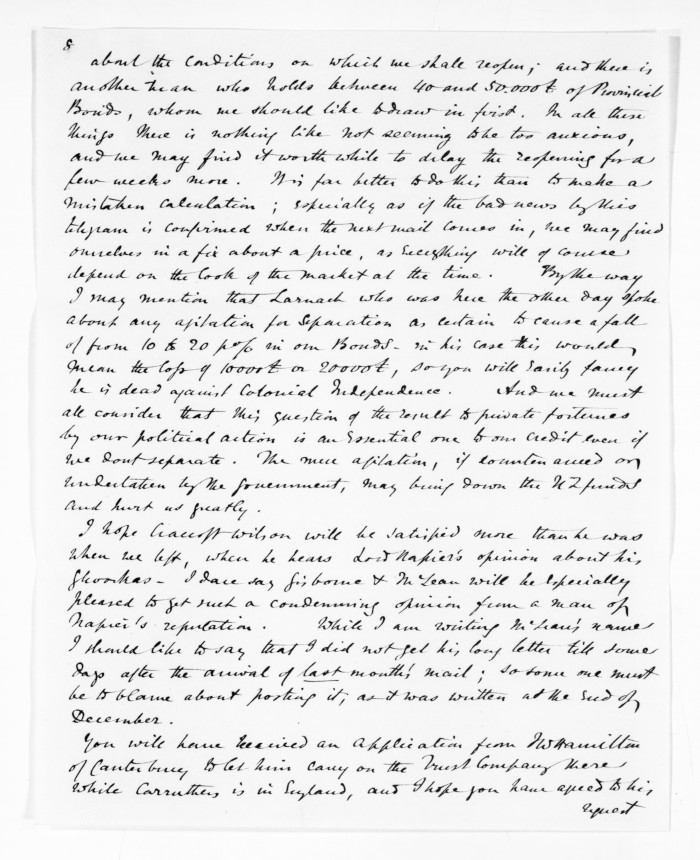 8
about the conditions on which we shall reopen; and there is
another man who holds between 40 and 50.000£ of Provincial
Bonds, whom we should like to draw in first. In all these
things there is nothing like not seeming to be too anxious,
and we may find it worth while to delay the reopening for a
few weeks more. It is far better to do this than to make a
mistaken calculation; especially as if the bad news by this
telegram is confirmed when the next mail comes in, we may find
ourselves in a fix about a price, as Everything will of course
depend on the look of the market at the time. By the way
I may mention that Larnach who was here the other day spoke
about any agitation for Separation as certain to cause a fall
of from 10 to 20 p% in our Bonds - in his case this would
mean the loss of 10000£ or 20000£, so you will Easily fancy
he is dead against Colonial Independence. And we must
all consider that this question of the result to private fortunes
by our political action is an Essential one to our credit even if
we dont separate. The mere agitation, if countenanced or
undertaken by the government, may bring down the NZ funds
and hurt us greatly.
I hope Cracroft Wilson will be satisfied more than he was
when we left, when he hears Lord Napier's opinion about his
Ghoorkas - I dare say Gisborne & McLean will be Especially
pleased to get such a condemning opinion from a man of
Napier's reputation. While I am writing McLean's name
I should like to say that I did not get his long letter till some
days after the arrival of last month's mail; so some one must
be to blame about posting it, as it was written at the End of
December.
You will have received an application from JW Hamilton
of Canterbury to let him carry on the Trust Company there
while Carruthers is in England, and I hope you have agreed to his
request